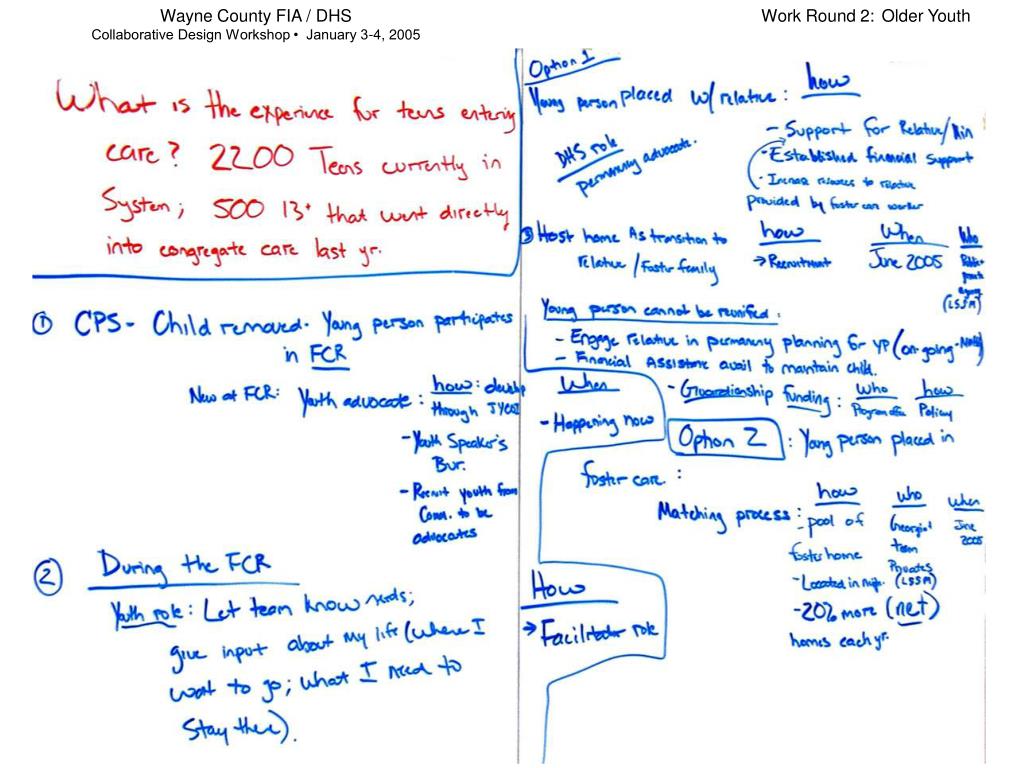 Wayne County FIA / DHS
Collaborative Design Workshop • January 3-4, 2005
Work Round 2: Older Youth
What is the experience for teens entering
care? 2200 Teens currently in
System; 500 13+ that went directly
into congregate care last yr.
① CPS- Child removed- Young person participates
in FCR
New at FCR: Youth advocate: how: develop
through
- Youth Speaker's
Bur.
- Recruit youth from
Comm. to be
advocates
② During the FCR
Youth role: Let team know needs;
give input about my life (where I
want to go; what I need to
stay there).
Option 1
Young person placed w/ relative: how
DHS role
permanency advocate.
- Support for Relative/Kin
- Established financial support
- Increase resources to relative
provided by foster care worker
③ Host home As transition to
relative / Foster family
how
→ Recruitment
When
June 2005
Who
(LSSM)
Young person cannot be reunified:
- Engage relative in permanency planning for YP (on-going-
- Financial Assistance avail to maintain child.
- Guardianship funding: who how
Policy
When
- Happening now
Option 2 : Young person placed in
foster care:
Matching process: how
- pool of
foster home
- Located in
- 20% more (net)
homes each yr.
who
team
Privates
(LSSM)
when
June
2005
How
→ Facilitator role